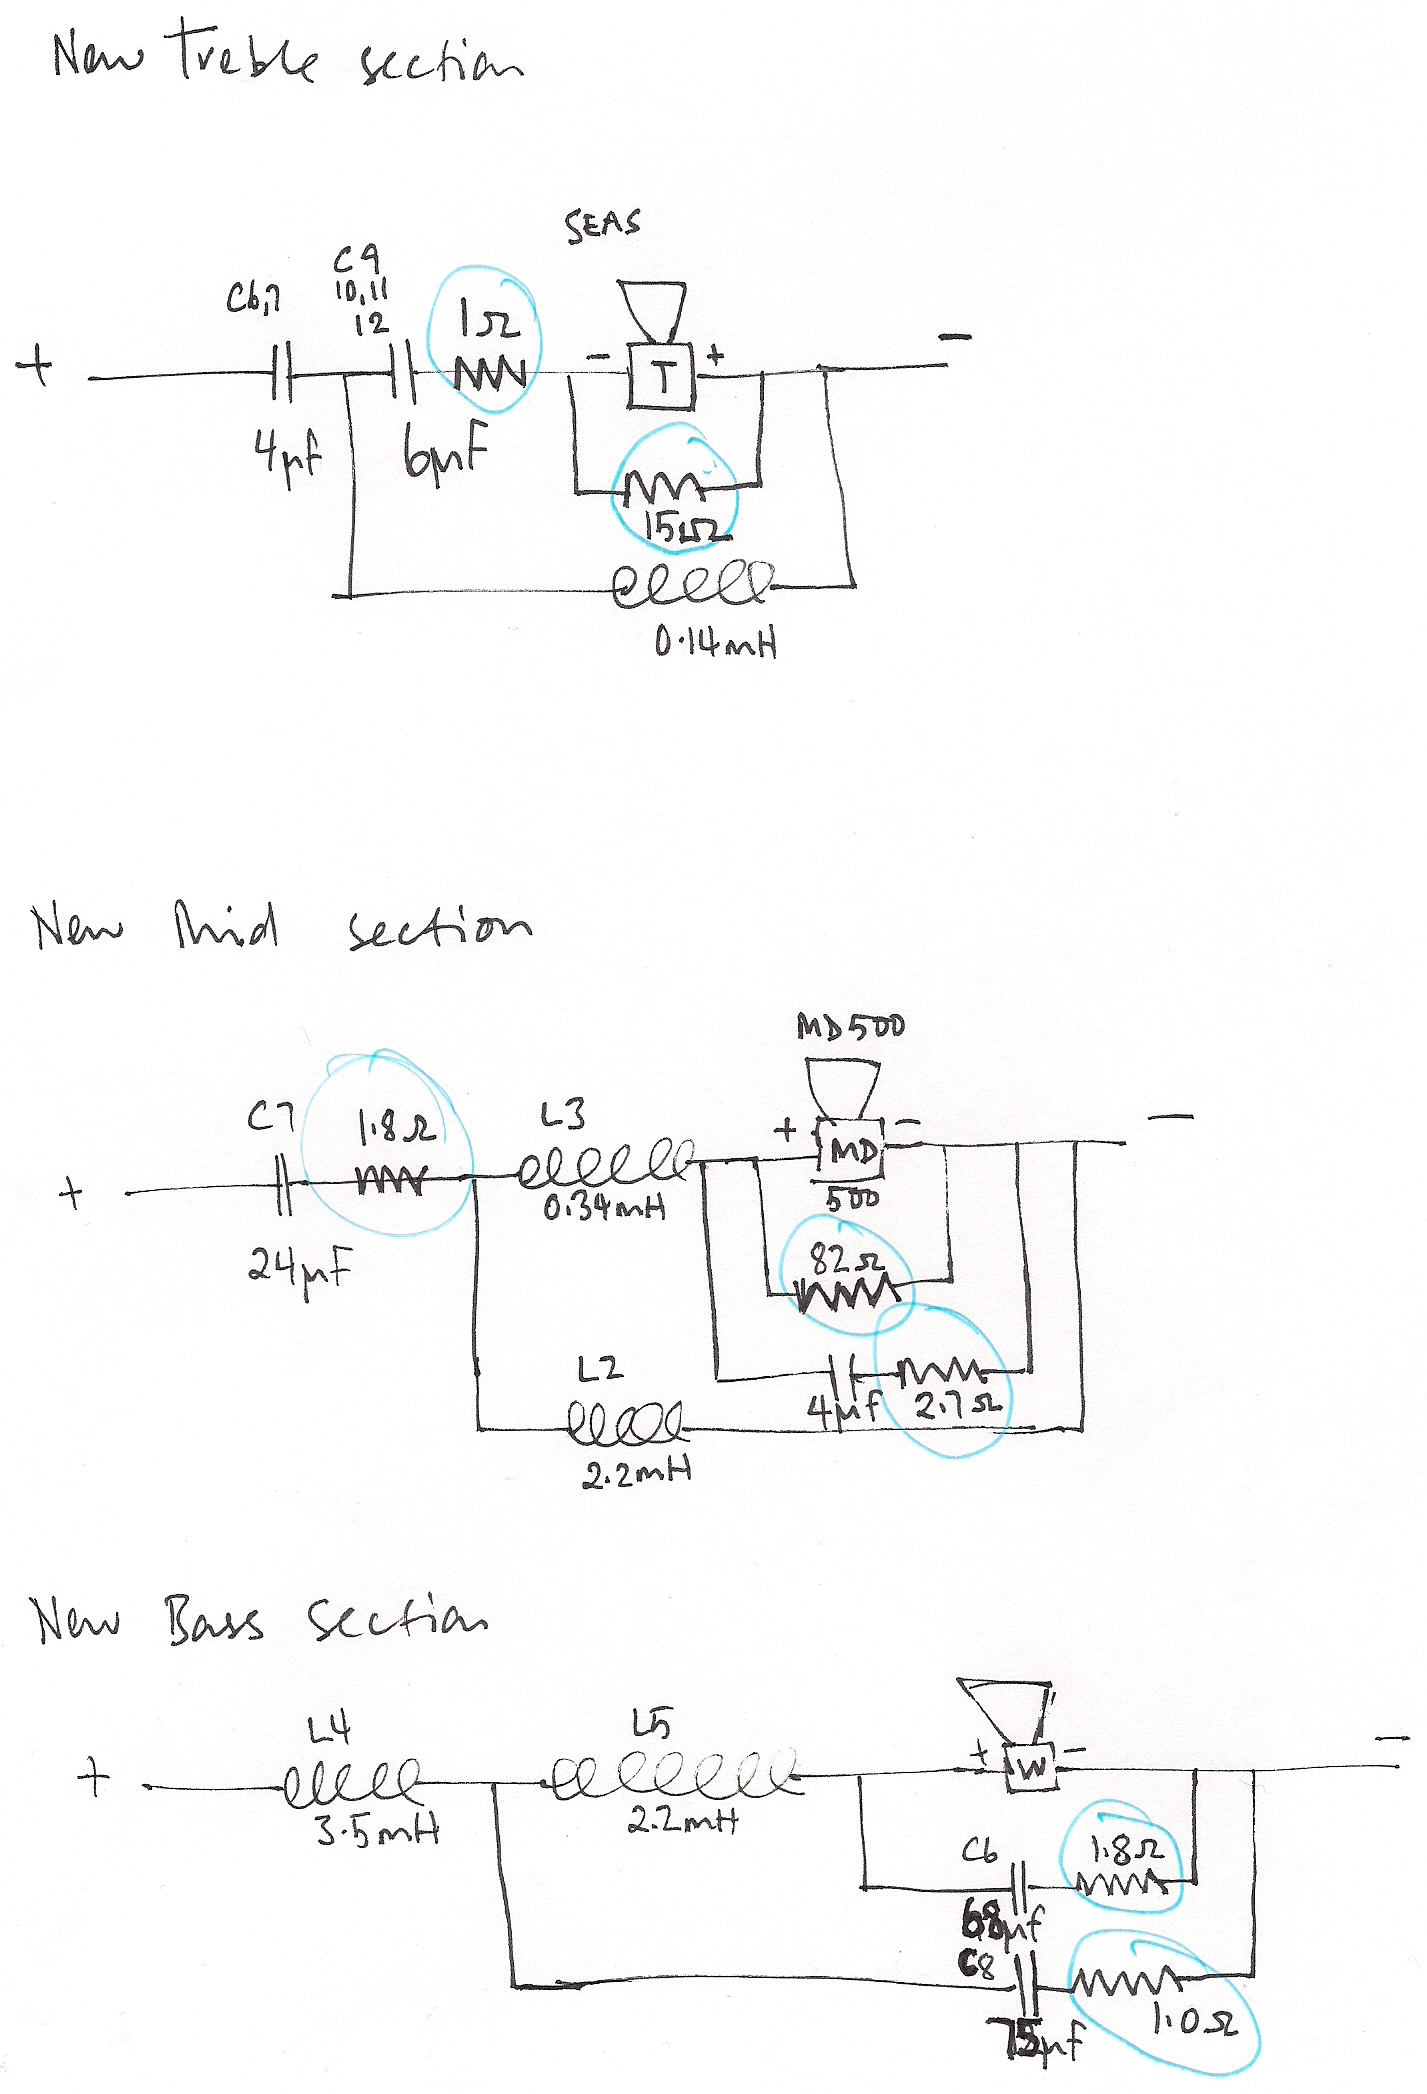 New Treble section
SEAS
C9
10,11
12
C6,7
1Ω
+
-
- T +
4µf
6µF
15Ω
0.14mH
New Mid section
MD500
C7
1.8Ω
L3
+ MD -
-
+
500
0.34mH
24µF
82Ω
L2
4µf
2.7Ω
2.2mH
New Bass section
L4
L5
+
+ W -
-
3.5mH
2.2mH
C6
1.8Ω
68µf
C8
75µf
1.0Ω